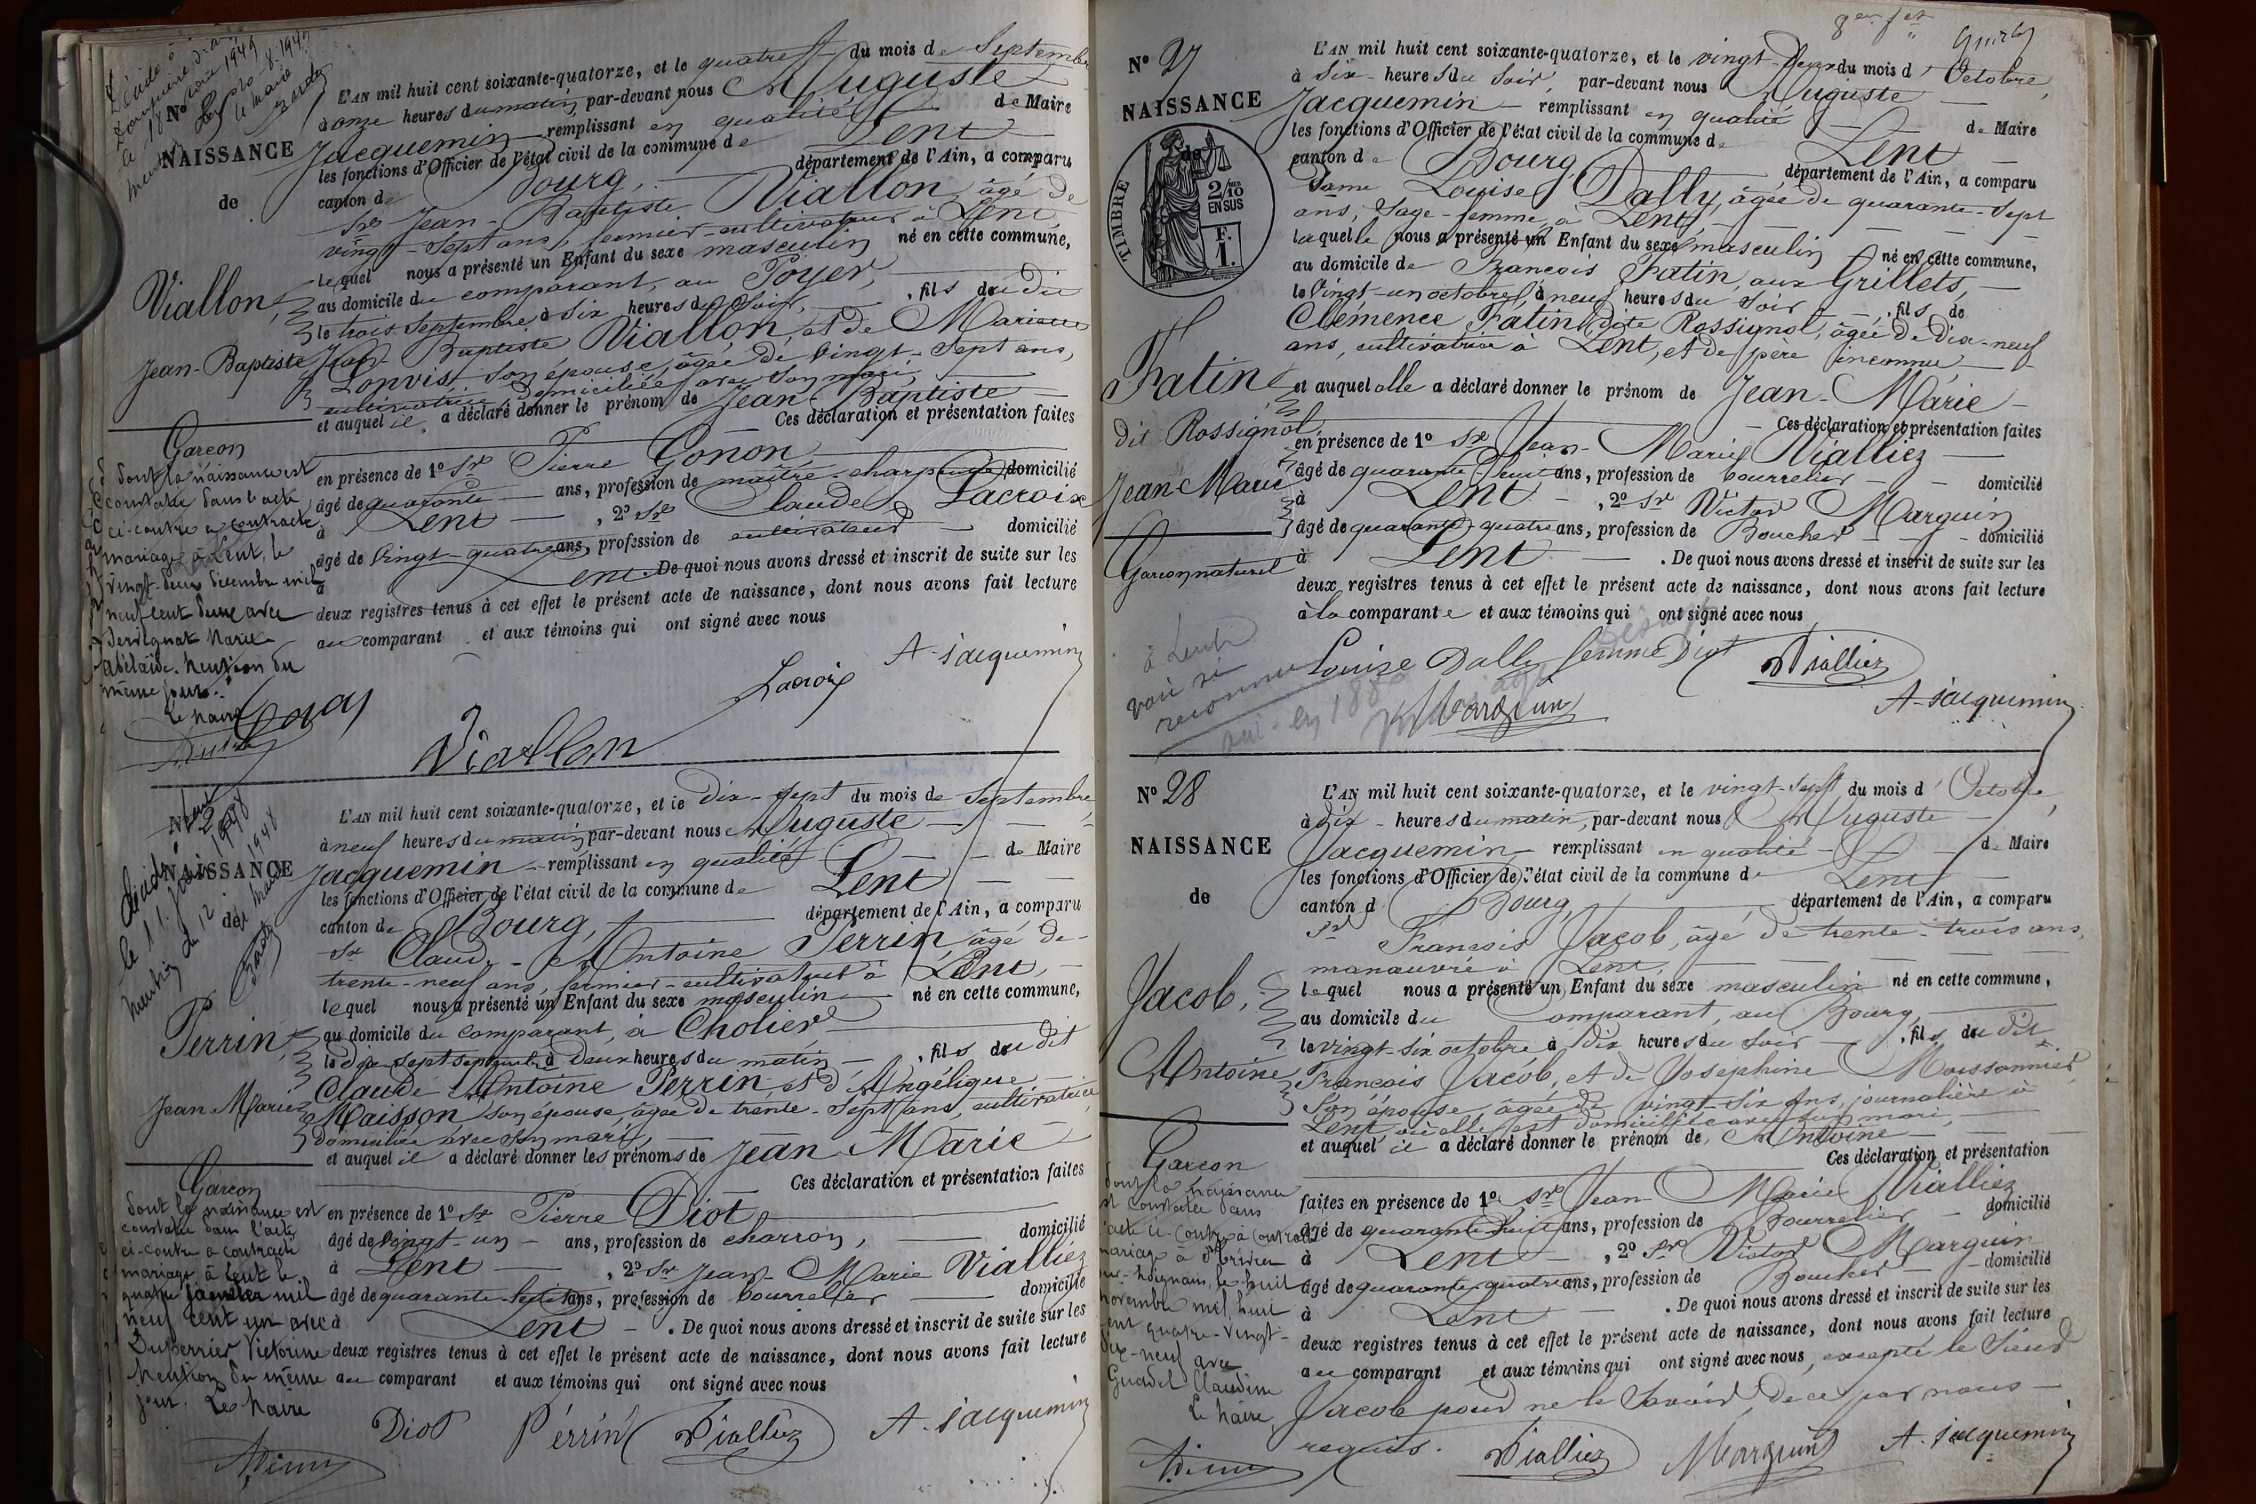 Nº
NAISSANCE
de
Viallon,
Jean-Baptiste
Garçon
dont la naissance est
constatée dans l'acte
ci-contre a contracté
mariage à Lent, le
vingt-deux décembre mil
neuf cent douze avec
même jour.
Le Maire
L'AN mil huit cent soixante-quatorze, et le quatre du mois de Septembre
à onze heures du matin, par-devant nous Auguste
Jacquemin remplissant en qualité de Maire
les fonctions d'Officier de l'état civil de la commune de Lent
canton de Bourg, département de l'Ain, a comparu
Sr Jean-Baptiste Viallon, âgé de
vingt-sept ans, fermier-cultivateur à Lent,
lequel nous a présenté un Enfant du sexe masculin né en cette commune,
au domicile du comparant, au Poyer,
le trois Septembre à six heures du soir, fils du dit
Jean Baptiste Viallon, et de Mariette
Lonvis, son épouse, âgée de vingt-sept ans,
cultivatrice, domiciliée avec son mari,
et auquel il a déclaré donner le prénom de Jean-Baptiste
Ces déclaration et présentation faites
en présence de 1º Sr Pierre Gonon
âgé de quarante ans, profession de maître-charpentier domicilié
à Lent, 2º Sr Claude Lacroix
âgé de vingt-quatre ans, profession de cultivateur domicilié
à Lent. De quoi nous avons dressé et inscrit de suite sur les
deux registres tenus à cet effet le présent acte de naissance, dont nous avons fait lecture
au comparant et aux témoins qui ont signé avec nous
A. Jacquemin
Lacroix
Viallon
NAISSANCE
de
Perrin,
Jean-Marie
Garçon
dont la naissance est
constatée dans l'acte
ci-contre a contracté
mariage à Lent le
quatre janvier mil
neuf cent un avec
Duperrier Victorine
Mention du même
jour. Le Maire
L'AN mil huit cent soixante-quatorze, et le dix-sept du mois de Septembre,
à neuf heures du matin, par-devant nous Auguste
Jacquemin remplissant en qualité de Maire
les fonctions d'Officier de l'état civil de la commune de Lent
canton de Bourg, département de l'Ain, a comparu
Sr Claude-Antoine Perrin, âgé de
trente-neuf ans, fermier-cultivateur à Lent,
lequel nous a présenté un Enfant du sexe masculin né en cette commune,
au domicile du comparant, à Cholier
le dix-sept septembre à deux heures du matin, fils du dit
Claude Antoine Perrin et d'Angélique
Maisson son épouse, âgée de trente-sept ans, cultivatrice,
domiciliée avec son mari,
et auquel il a déclaré donner les prénoms de Jean Marie
Ces déclaration et présentation faites
en présence de 1º Sr Pierre Diot
âgé de vingt-un ans, profession de charron, domicilié
à Lent, 2º Sr Jean-Marie Vialliez
âgé de quarante-huit ans, profession de bourrelier domicilié
à Lent. De quoi nous avons dressé et inscrit de suite sur les
deux registres tenus à cet effet le présent acte de naissance, dont nous avons fait lecture
au comparant et aux témoins qui ont signé avec nous
Diot Perrin Vialliez A. Jacquemin
Nº 27
NAISSANCE
de
TIMBRE
2/10
EN SUS
F.
1.
Fatin
dit Rossignol
Jean Marie
Garçon naturel
L'AN mil huit cent soixante-quatorze, et le vingt-deux du mois d'Octobre,
à six heures du soir, par-devant nous Auguste
Jacquemin remplissant en qualité de Maire
les fonctions d'Officier de l'état civil de la commune de Lent
canton de Bourg, département de l'Ain, a comparu
Dame Louise Dally, âgée de quarante-sept
ans, sage-femme à Lent,
laquelle nous a présenté un Enfant du sexe masculin né en cette commune,
au domicile de François Fatin, aux Grillets,
le vingt-un octobre, à neuf heures du soir, fils de
Clémence Fatin dite Rossignol, âgée de dix-neuf
ans, cultivatrice à Lent, et de père inconnu
et auquel elle a déclaré donner le prénom de Jean-Marie
Ces déclaration et présentation faites
en présence de 1º Sr Jean-Marie Vialliez
âgé de quarante-huit ans, profession de bourrelier domicilié
à Lent, 2º Sr Victor Marguin
âgé de quarante-quatre ans, profession de Boucher domicilié
à Lent. De quoi nous avons dressé et inscrit de suite sur les
deux registres tenus à cet effet le présent acte de naissance, dont nous avons fait lecture
à la comparante et aux témoins qui ont signé avec nous
Louise Dally femme Diot Vialliez
Marguin A. Jacquemin
Nº 28
NAISSANCE
de
Jacob,
Antoine
Garçon
dont la naissance
est constatée dans
l'acte ci-contre a contracté
novembre mil huit
cent quatre-vingt-
dix-neuf avec
Claudine
Le Maire,
L'AN mil huit cent soixante-quatorze, et le vingt-sept du mois d'Octobre,
à dix heures du matin, par-devant nous Auguste
Jacquemin remplissant en qualité de Maire
les fonctions d'Officier de l'état civil de la commune de Lent
canton d Bourg, département de l'Ain, a comparu
Sr François Jacob, âgé de trente-trois ans,
manœuvre à Lent,
lequel nous a présenté un Enfant du sexe masculin né en cette commune,
au domicile du comparant, au Bourg,
le vingt-six octobre à dix heures du soir, fils du dit
François Jacob, et de Josephine Moissonnier,
son épouse, âgée de vingt-six ans, journalière à
Lent, où elle est domiciliée avec son mari,
et auquel il a déclaré donner le prénom de Antoine
Ces déclaration et présentation
faites en présence de 1º Sr Jean-Marie Vialliez
âgé de quarante-huit ans, profession de Bourrelier domicilié
à Lent, 2º Sr Victor Marguin
âgé de quarante-quatre ans, profession de Boucher domicilié
à Lent. De quoi nous avons dressé et inscrit de suite sur les
deux registres tenus à cet effet le présent acte de naissance, dont nous avons fait lecture
au comparant et aux témoins qui ont signé avec nous, excepté le Sieur
Jacob pour ne le savoir, de ce par nous
requis. Vialliez Marguin A. Jacquemin